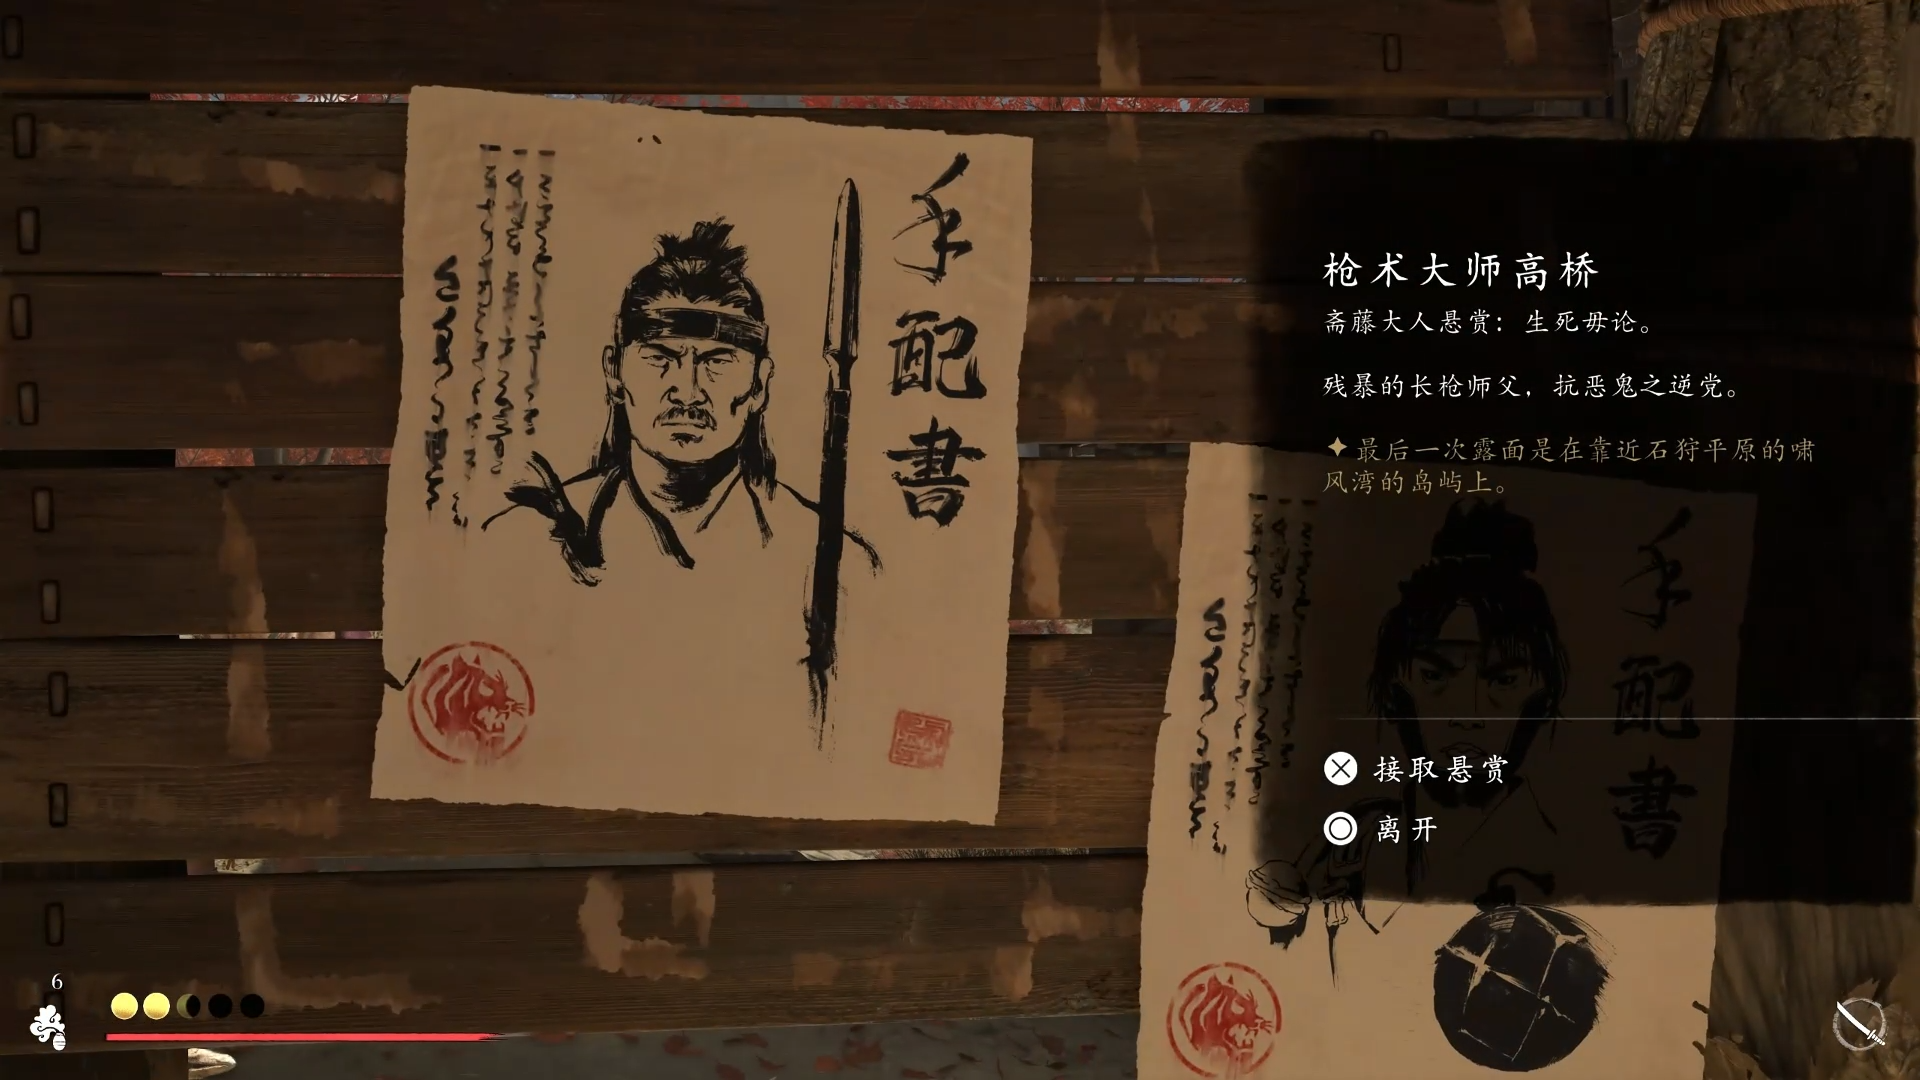 手配書
枪术大师高桥
斋藤大人悬赏：生死毋论。
残暴的长枪师父，抗恶鬼之逆党。
最后一次露面是在靠近石狩平原的啸
风湾的岛屿上。
手配書
接取悬赏
离开
6